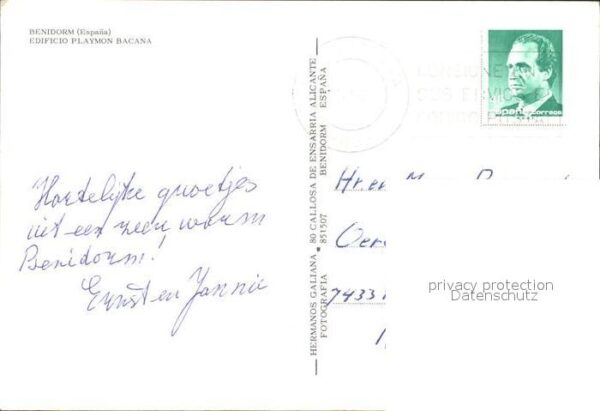 BENIDORM (España)
EDIFICIO PLAYMON BACANA
Hartelijke groetjes
uit een zeer warm
Benidorm!
Ernst en Jannie
HERMANOS GALIANA ■ 80 CALLOSA DE ENSARRIA ALICANTE
FOTOGRAFIA 851507 BENIDORM ESPAÑA
CONSIGNE EN
SUS ENVIOS EL
correos
Hr. en
7433
privacy protection
Datenschutz